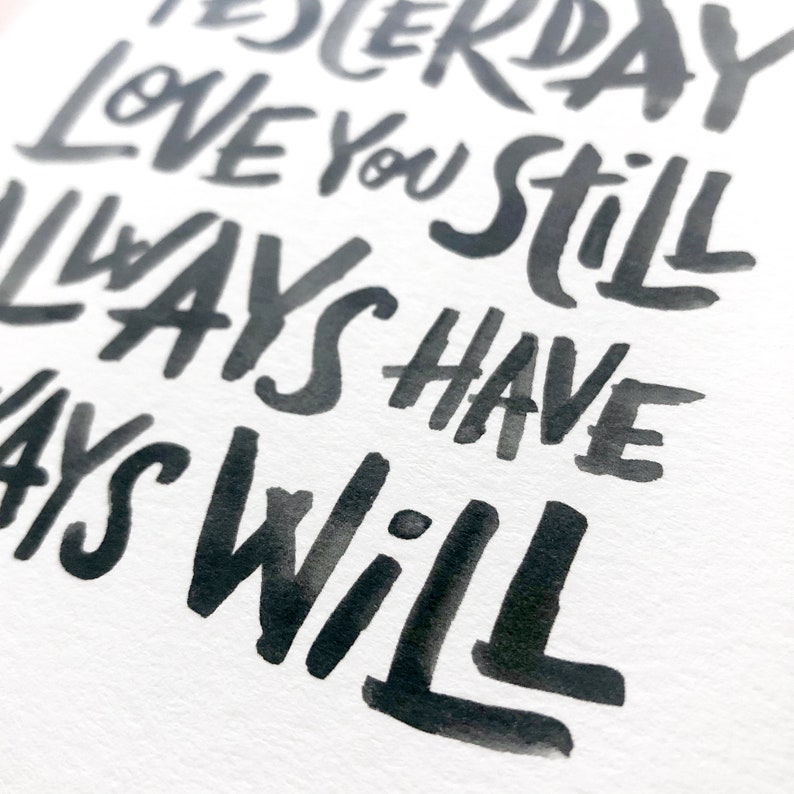 YESTERDAY
LOVE YOU STiLL
ALWAYS HAVE
WAYS WiLL